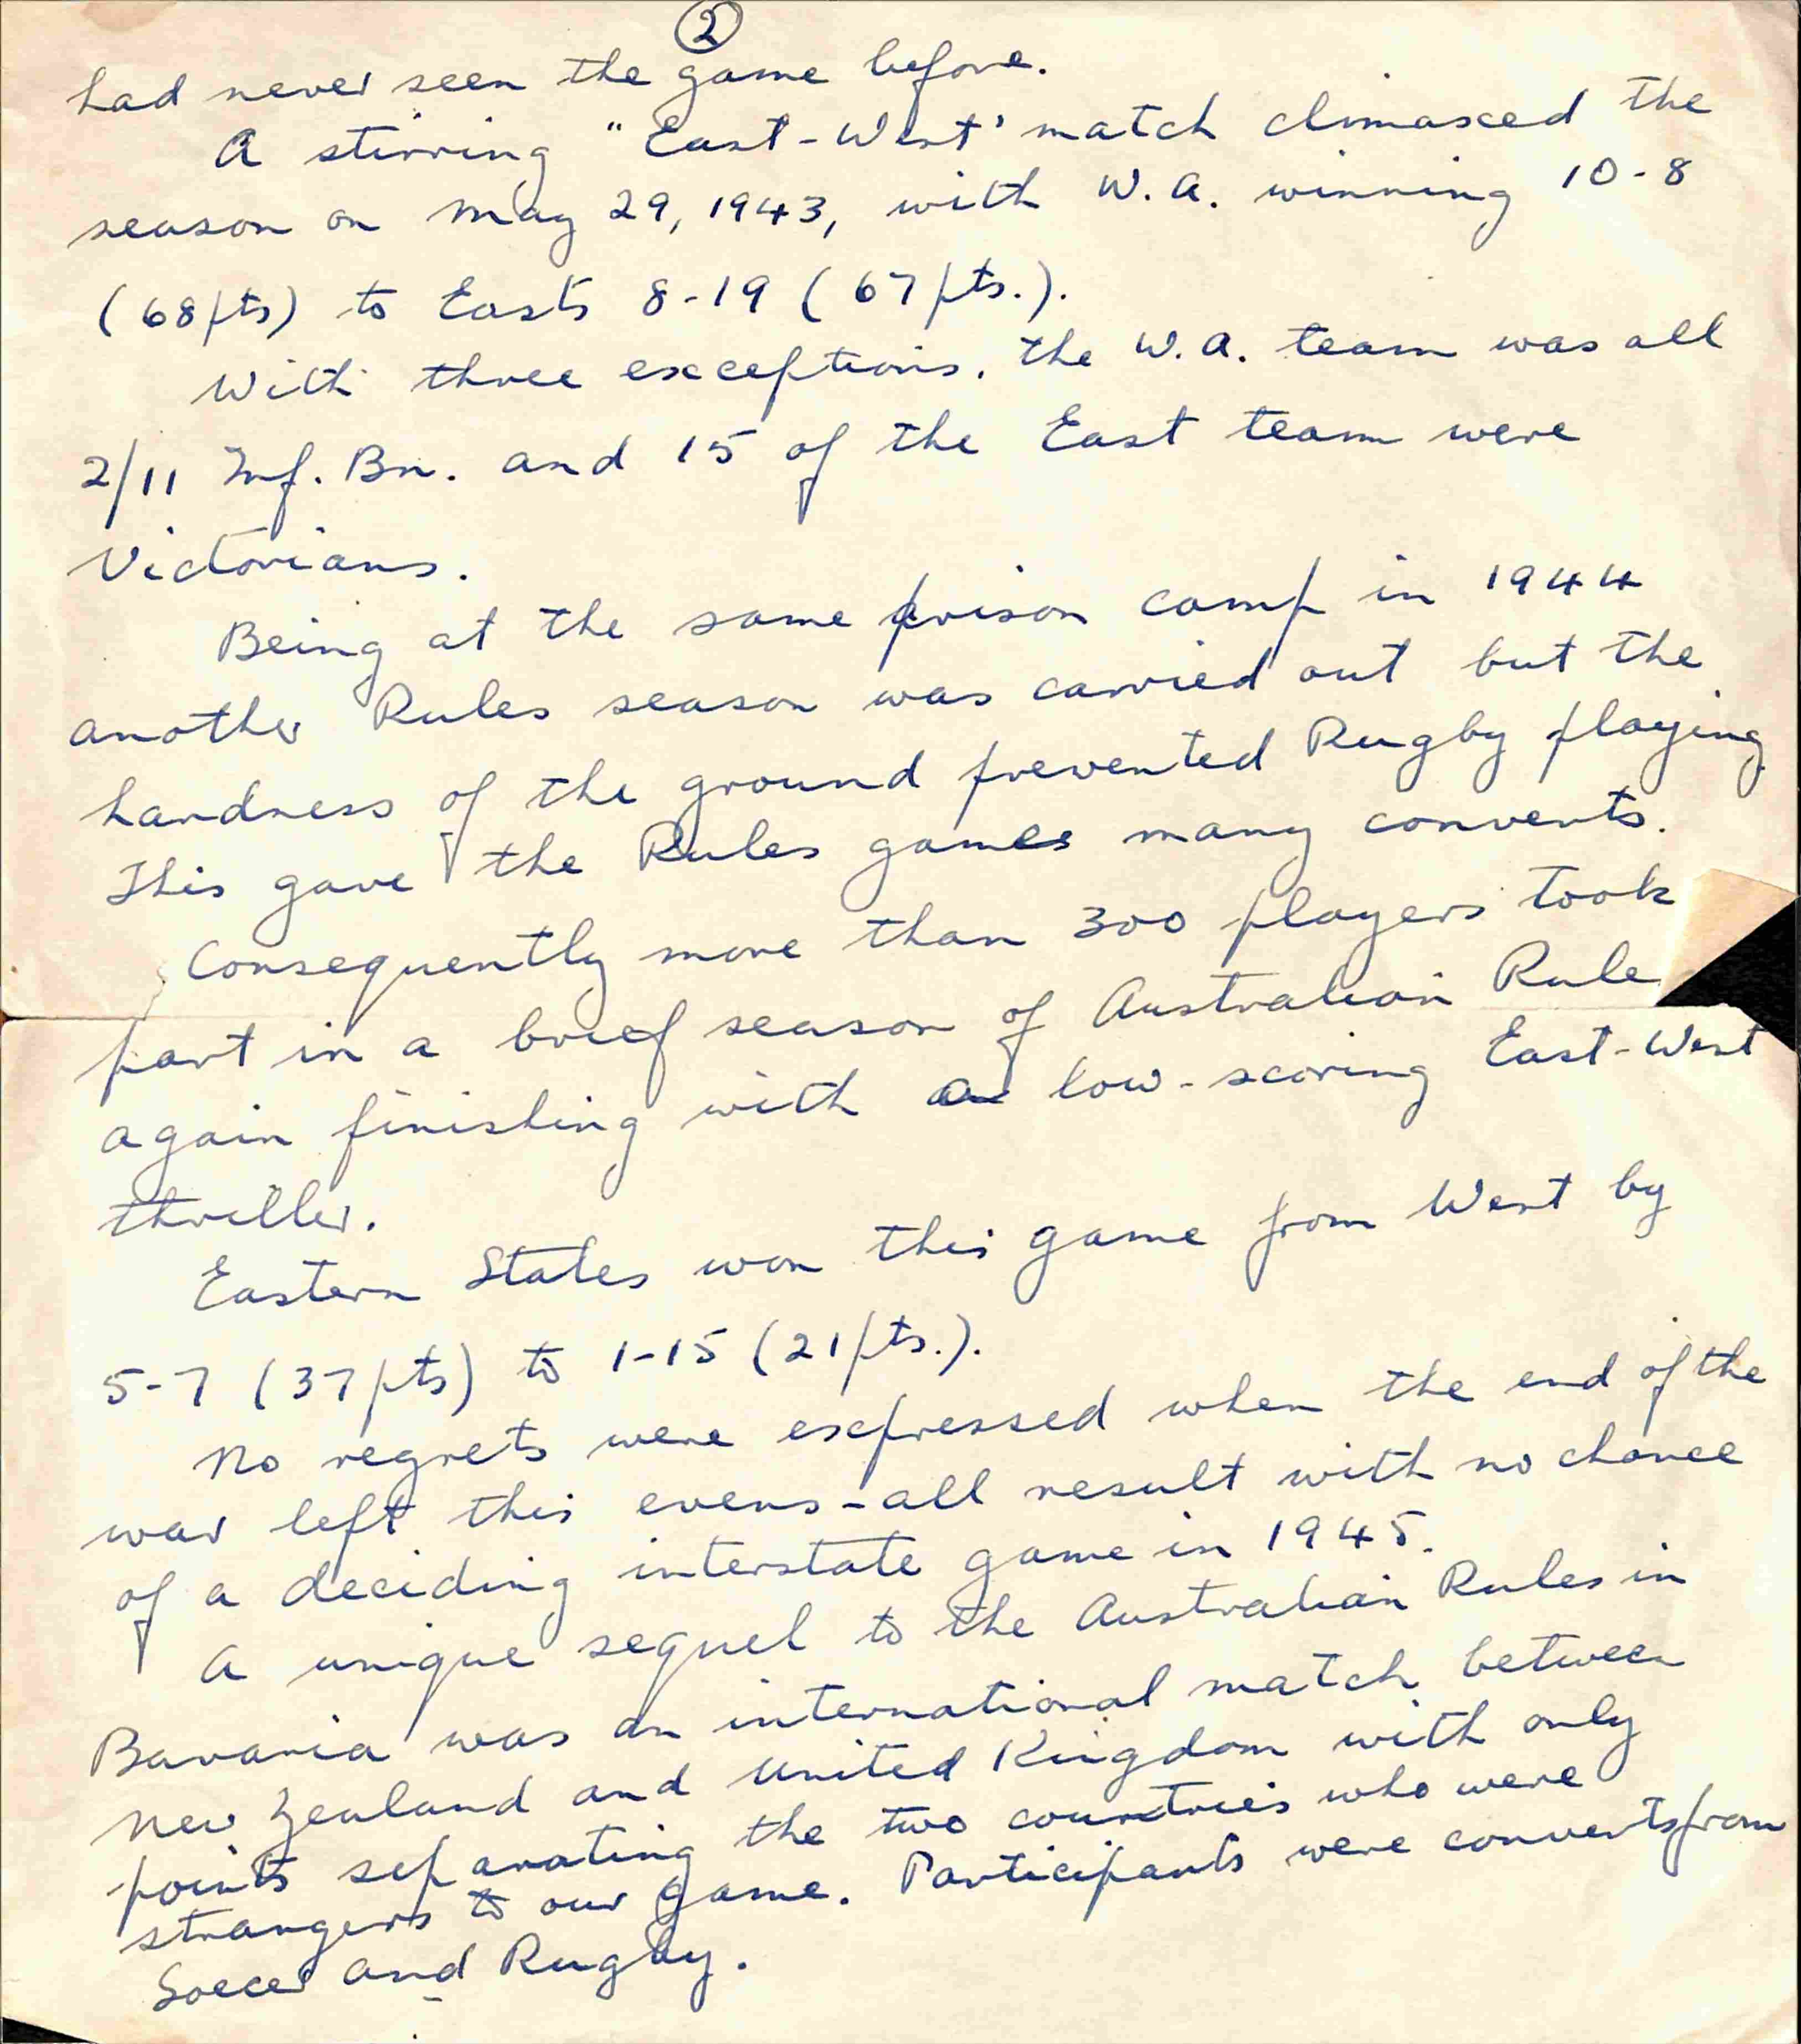 2
had never seen the game before.
A stirring "East-West' match climaxed the
season on May 29, 1943, with W.A. winning 10-8
(68pts) to Easts 8-19 (67pts.).
With three exceptions, the W.A. team was all
2/11 Inf. Bn. and 15 of the East team were
Victorians.
Being at the same prison camp in 1944
another Rules season was carried out but the
hardness of the ground prevented Rugby playing
This gave the Rules games many converts.
Consequently more than 300 players took
part in a brief season of Australian Rule
again finishing with a low-scoring East-West
thriller.
Eastern States won this game from West by
5-7 (37pts) to 1-15 (21pts.).
No regrets were expressed when the end of the
war left this evens-all result with no chance
of a deciding interstate game in 1945.
A unique sequel to the Australian Rules in
Bavaria was an international match between
New Zealand and United Kingdom with only
points separating the two countries who were
strangers to our game. Participants were converts from
Soccer and Rugby.